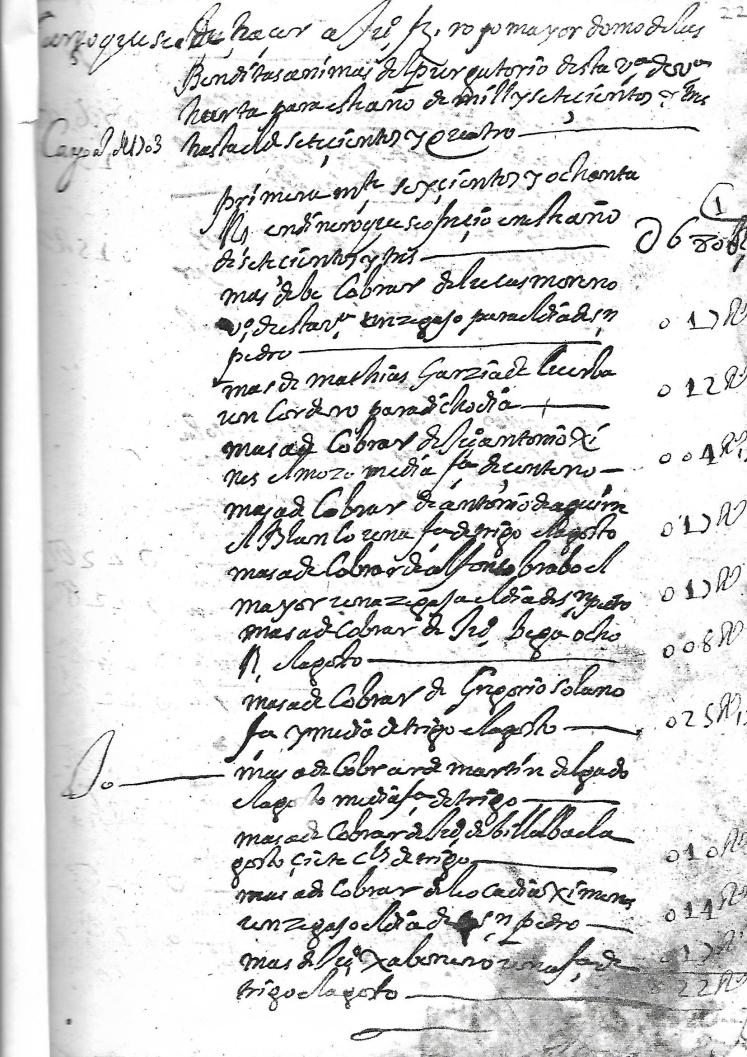 22
Cargo que se a de hacer a Juº fz. royo mayordomo de las
Benditas animas del Purgatorio desta vª de
para este año de mill y setecientos y tres
Cargo del 1703
hasta el de setecientos y quatro
primeramte seyscientos y ochenta
Rs en dinero que se año
de setecientos y tres
0680 Rs
mas debe Cobrar de lucas moreno
vº desta vª un zegajo para el dia de sn
pedro
017 Rs
mas de mathias Garzia de Cuerba
un Cordero para dicho dia
012 Rs
mas a de Cobrar de Juº antonio Xi
nes el mozo media fa de zenteno
004 Rs
mas a de Cobrar de antonio de aguirre
el Blanco una fa de trigo el agosto
017 Rs
mas a de Cobrar de alfonso brabo el
mayor un zegajo el dia de sn pedro
017 Rs
mas a de Cobrar de Juº Bega ocho
Rs el agosto
008 Rs
mas a de Cobrar de Grigorio solano
fa y media de trigo el agosto
025 Rs
mas a de Cobrar de martin delgado
el agosto media fa de trigo
mas a de Cobrar de Juº de billalba el a
gosto siete cls de trigo
010 Rs
mas a de Cobrar de leocadia Ximenes
un zegajo el dia de sn pedro
014 Rs
mas de Juº una fa de
017 Rs
trigo el agosto
022 Rs